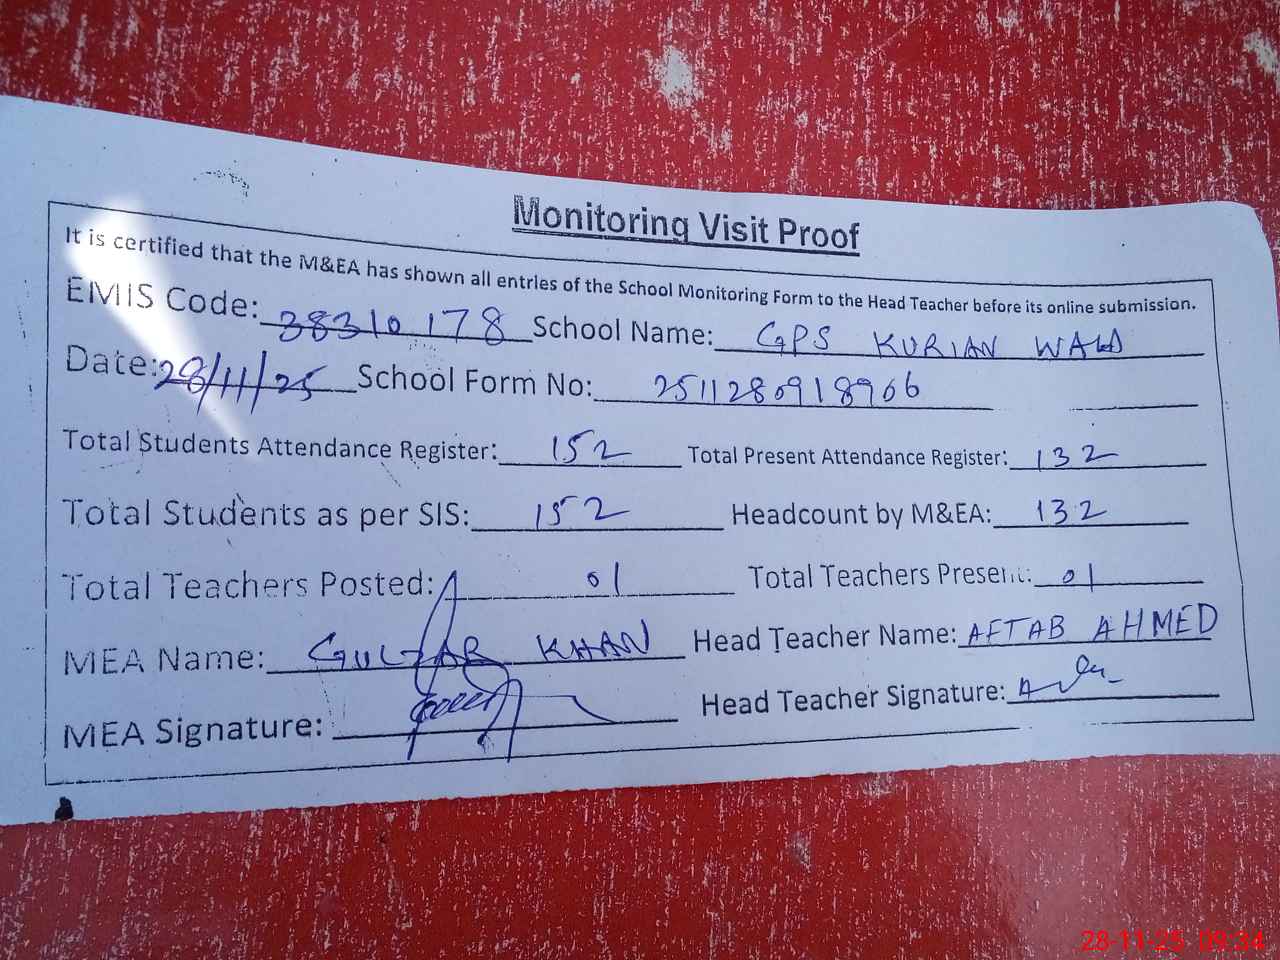 Monitoring Visit Proof
It is certified that the M&EA has shown all entries of the School Monitoring Form to the Head Teacher before its online submission.
EMIS Code: 38310178 School Name: GPS KURIAN WALA
Date: 28/11/25 School Form No: 2511280918906
Total Students Attendance Register: 152 Total Present Attendance Register: 132
Total Students as per SIS: 152 Headcount by M&EA: 132
Total Teachers Posted: 01 Total Teachers Present: 01
MEA Name: GULZAR KHAN Head Teacher Name: AFTAB AHMED
MEA Signature: Head Teacher Signature:
28-11-25 09:34